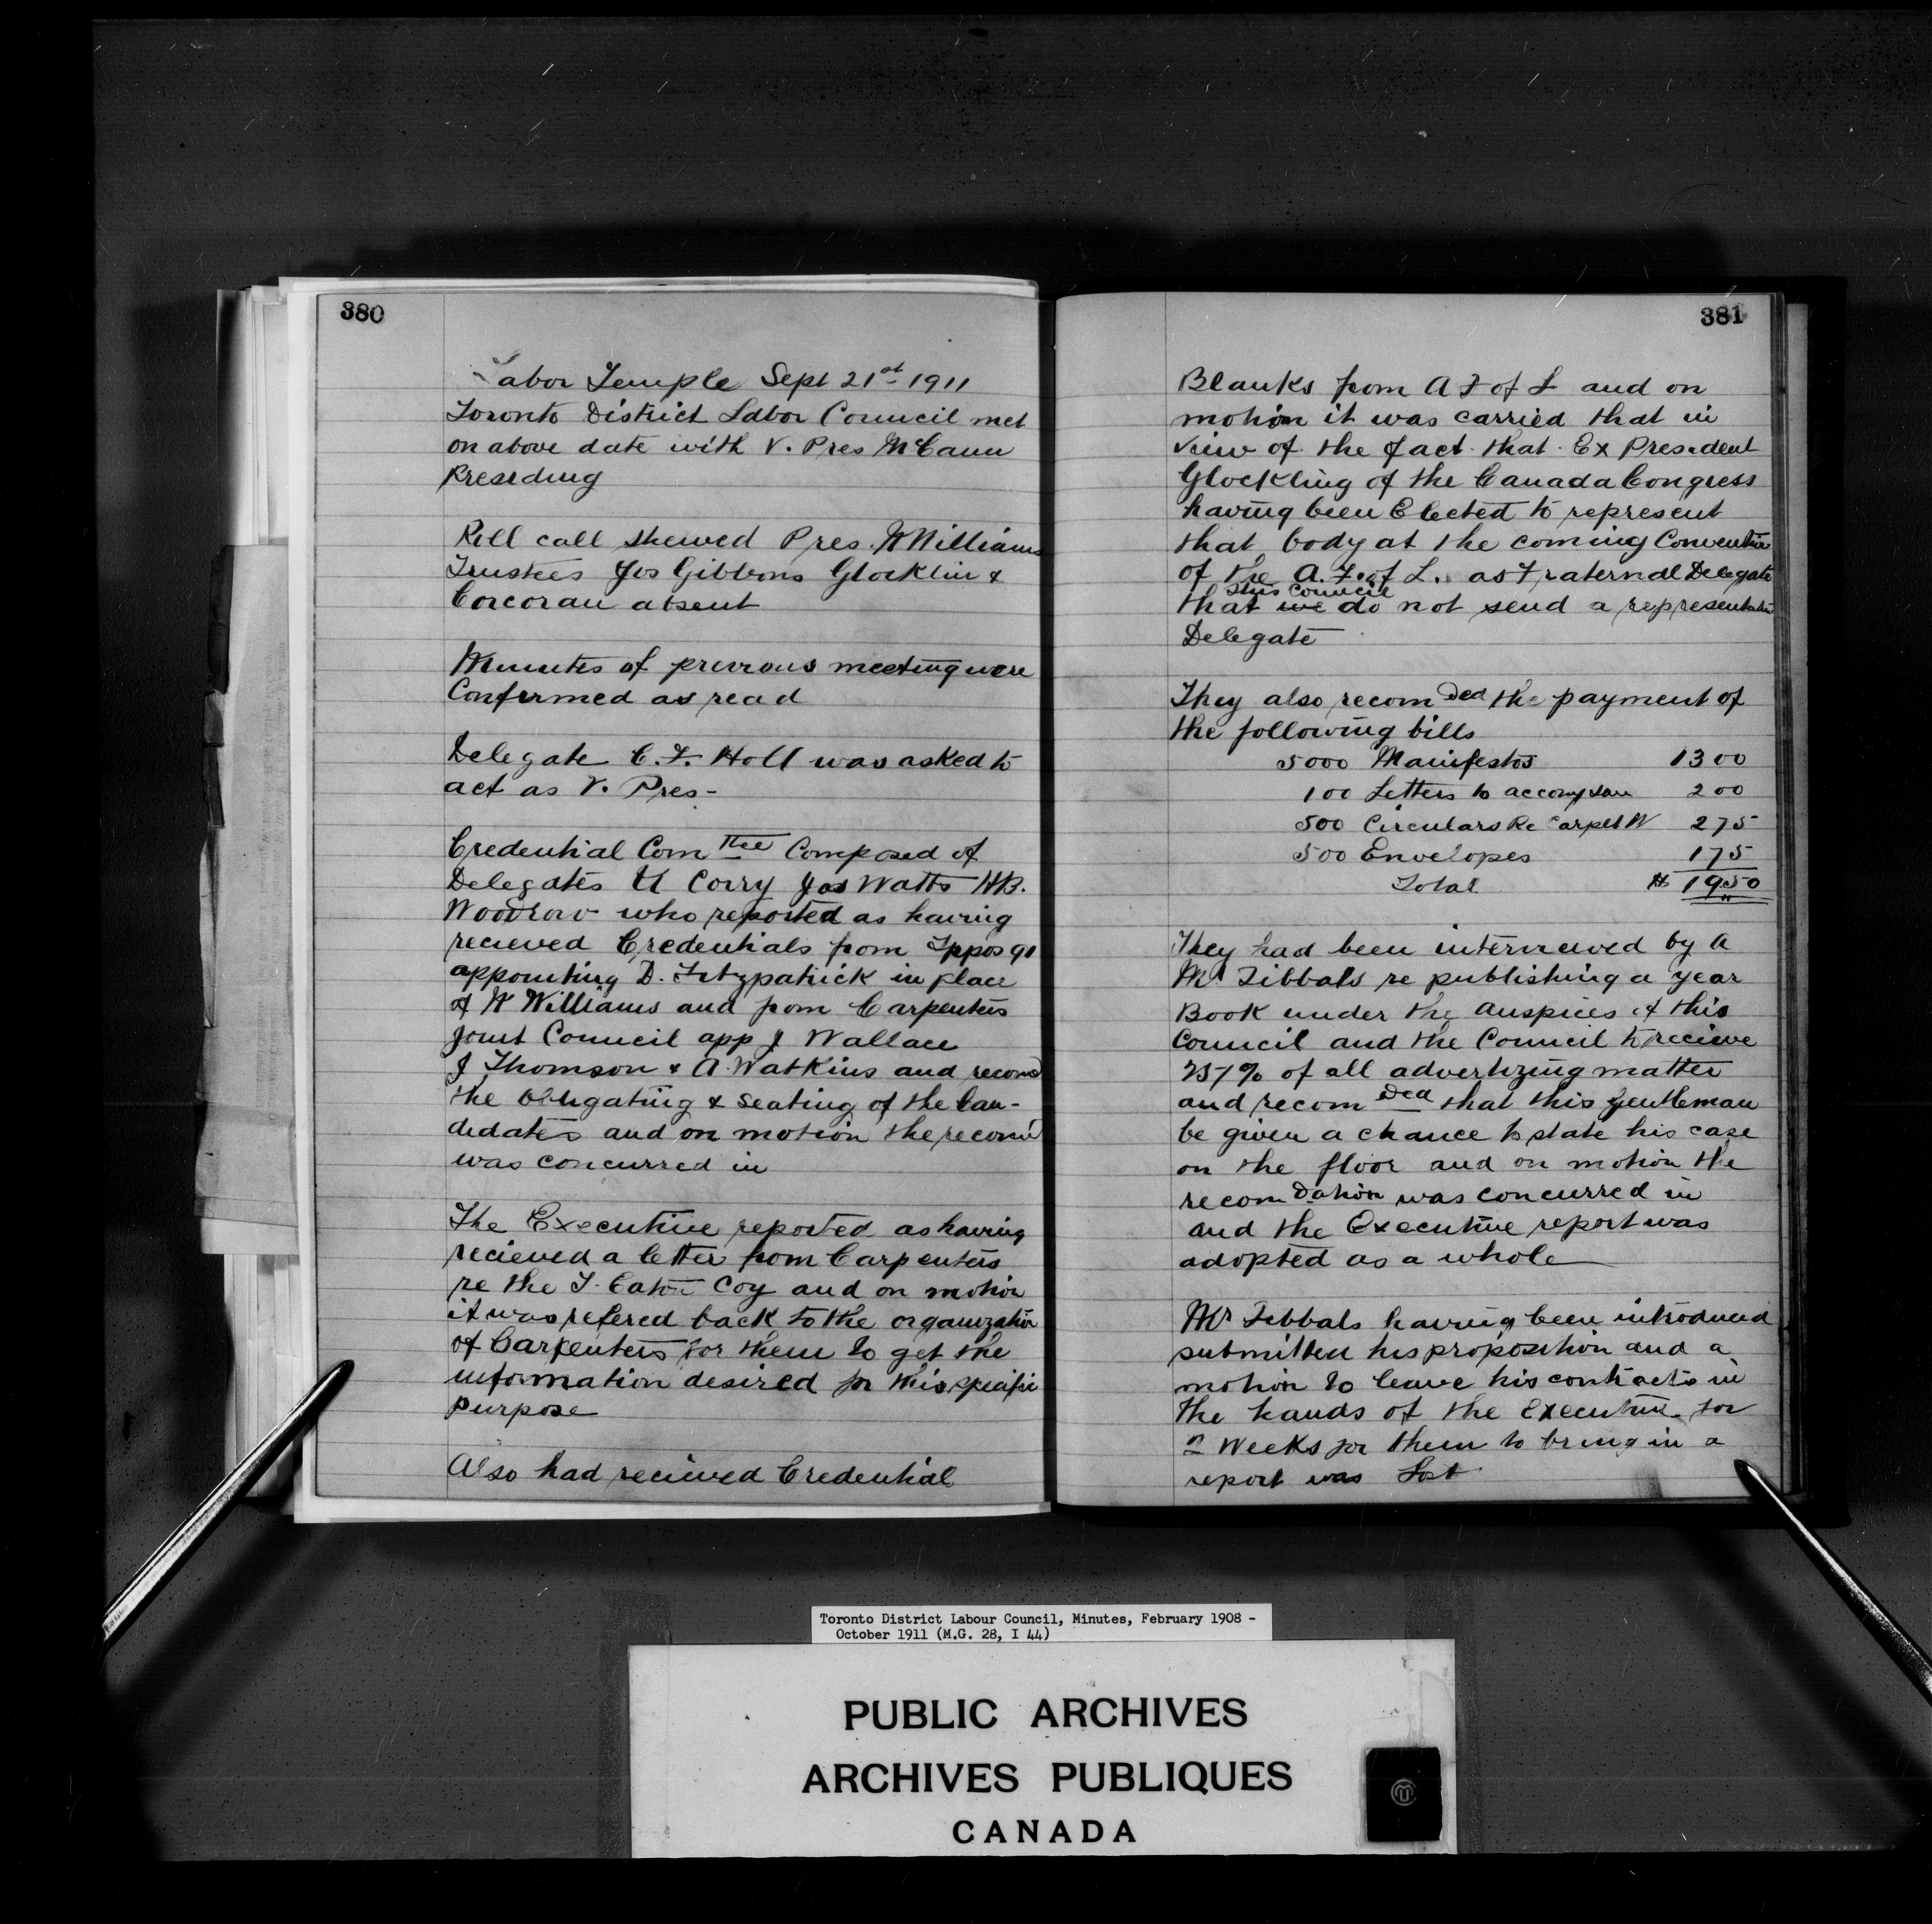 380
Labor Temple Sept 21st 1911
Toronto District Labor Council met
on above date with V. Pres McCann
Presiding
Roll call shewed Pres. W Williams
Trustees Jos Gibbons Glocklin &
Corcoran absent
Minutes of previous meeting were
Confirmed as read
Delegate C. F. Holl was asked to
act as V. Pres -
Credential Comttee Composed of
Delegates Corry Jas Watts HB.
Woodrow who reported as having
recieved Credentials from Typos 91
appointing D. Fitzpatrick in place
of W Williams and from Carpenters
Joint Council app J Wallace
J Thomson & A Watkins and recomd
the obligating & seating of the Can-
didates and on motion the recomd
was concurred in
The Executive reported as having
recieved a letter from Carpenters
re the T. Eaton Coy and on motion
it was refered back to the organization
of Carpenters for them to get the
information desired for this specific
Purpose
Also had recieved Credential
381
Blanks from A F of L and on
motion it was carried that in
view of the fact that Ex President
Glockling of the Canada Congress
having been Elected to represent
that body at the coming Convention
of the A. F. of L. as Fraternal Delegate
this Council
that we do not send a representative
Delegate
They also recomded the payment of
the following bills
5000 Manifestos 13 00
100 Letters to accompany 2 00
500 Circulars Re Carpet W 2 75
500 Envelopes 1 75
Total $ 19.50
They had been interviewed by a
Mr Tibbals re publishing a year
Book under the auspices of this
Council and the Council to recieve
25% of all advertizing matter
and recomded that this gentleman
be given a chance to state his case
on the floor and on motion the
recomdation was concurred in
and the Executive report was
adopted as a whole
Mr Tibbals having been introduced
submitted his proposition and a
motion to leave his contracts in
the hands of the Executive for
2 Weeks for them to bring in a
report was Lost
Toronto District Labour Council, Minutes, February 1908 -
October 1911 (M.G. 28, I 44)
PUBLIC ARCHIVES
ARCHIVES PUBLIQUES
CANADA